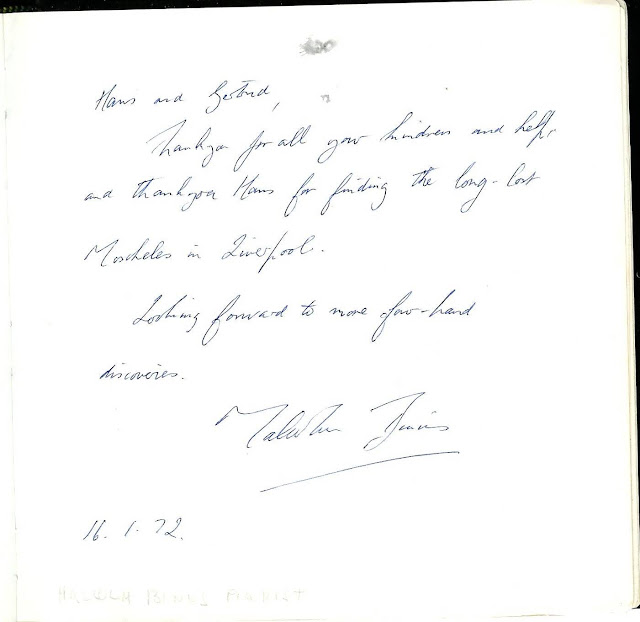 Hans and Gertrud,
Thankyou for all your kindness and help,
and thankyou Hans for finding the long-lost
Moscheles in Liverpool.
Looking forward to more four-hand
discoveries.
Malcolm Binns
16.1.72.
MALCOLM BINNS PIANIST